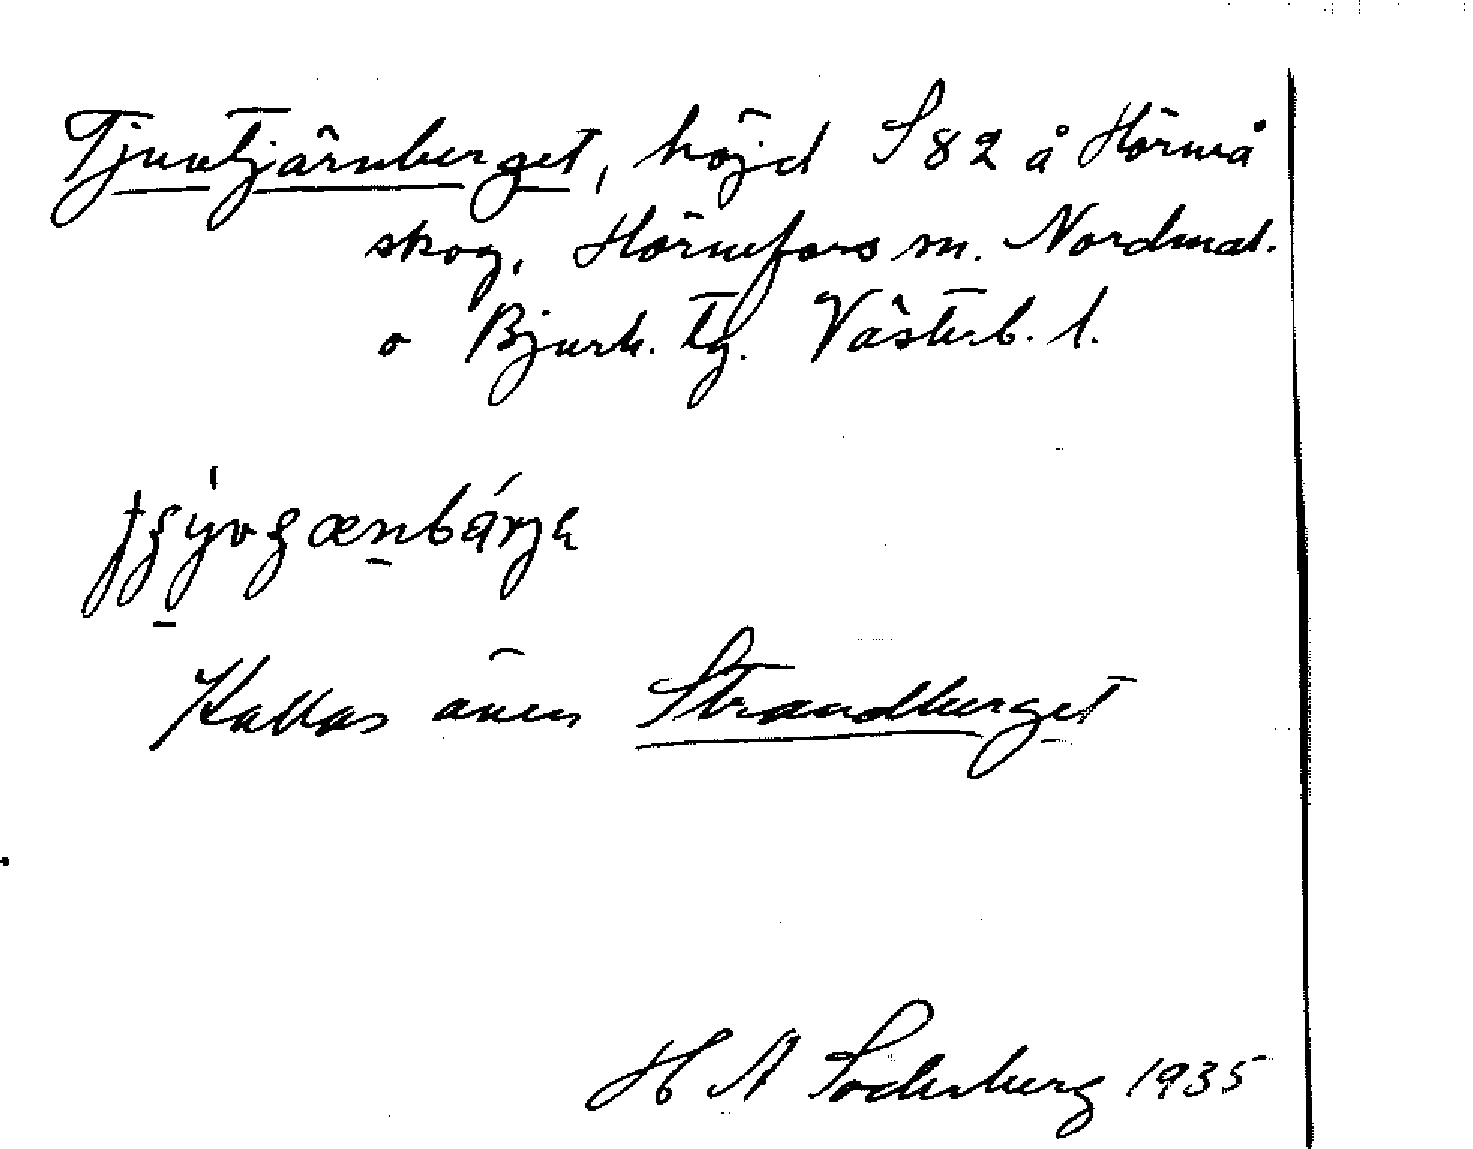 Tjuvtjärnberget, höjd S 82 å Hörneå
skog, Hörnefors sn. Nordmal.
o Bjurh. tg. Västerb. l.
Kallas även Strandberget
H A Söderberg 1935